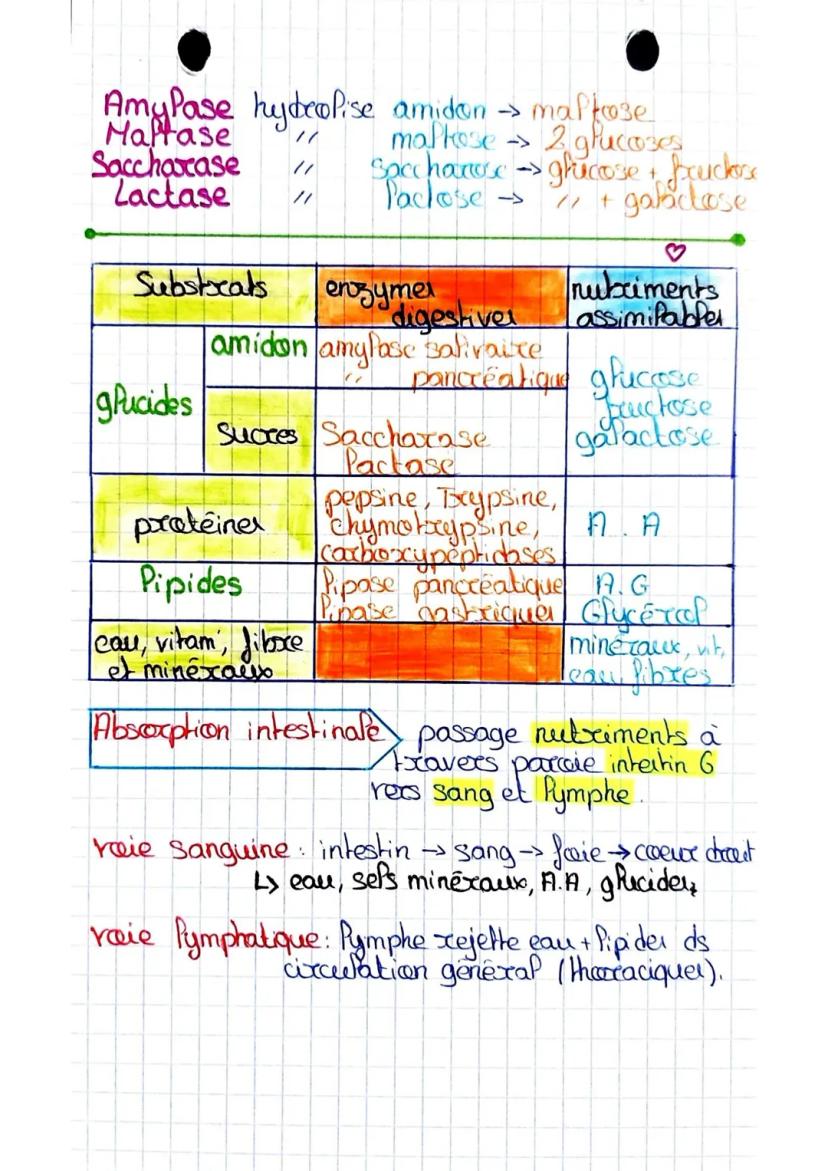 Amylase hydrolise amidon → maltose
Maltase // maltose → 2 glucoses
Saccharase // saccharose → glucose + fructose
Lactase // lactose → // + galactose
Substrats enzymes digestives nutriments assimilables
glucides amidon amylase salivaire
// pancréatique
glucose
fructose
galactose
sucres Saccharase
lactase
protéines pepsine, Trypsine,
chymotrypsine,
carboxypeptidases
A.A
lipides lipase pancréatique
lipase gastriques
A.G
Glycérol
eau, vitam', fibre
et minéraux
minéraux, vit,
eau, fibres
Absorption intestinale passage nutriments à
travers paroie intestin G
vers sang et lymphe.
voie sanguine : intestin → sang → foie → coeur droit
↳ eau, sels minéraux, A.A, glucides
voie lymphatique : lymphe rejette eau + lipides ds
circulation général (thoraciques).